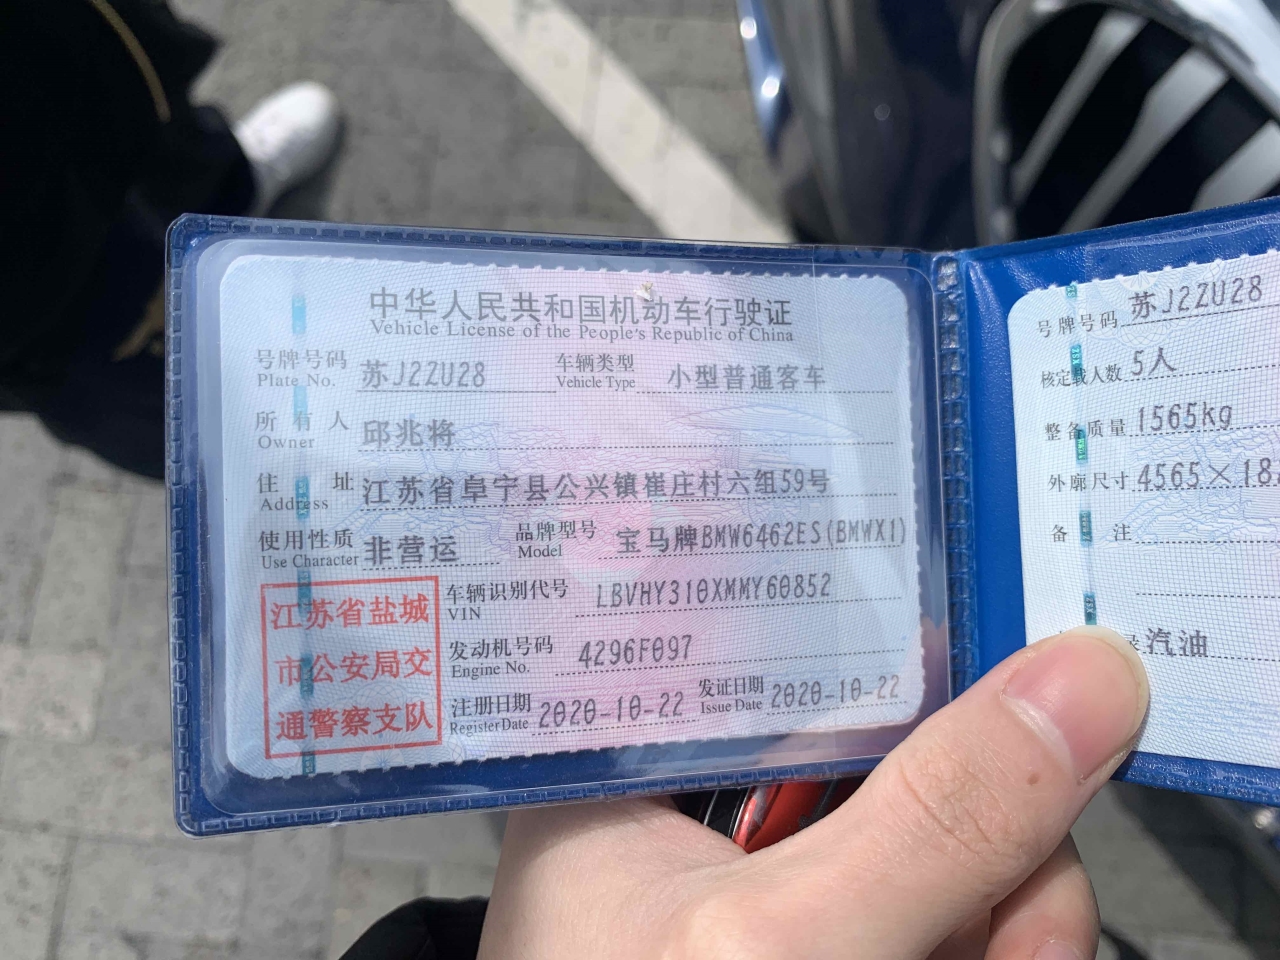 中华人民共和国机动车行驶证
Vehicle License of the People's Republic of China
号牌号码 苏J2ZU28 车辆类型 小型普通客车
Plate No. Vehicle Type
所有人 邱兆将
Owner
住址 江苏省阜宁县公兴镇崔庄村六组59号
Address
使用性质 非营运 品牌型号 宝马牌BMW6462ES(BMWX1)
Use Character Model
江苏省盐城
市公安局交
通警察支队
车辆识别代号 LBVHY310XMMY60852
VIN
发动机号码 4296F097
Engine No.
注册日期 2020-10-22 发证日期 2020-10-22
Register Date Issue Date
号牌号码 苏J2ZU28
核定载人数 5人
整备质量 1565kg
外廓尺寸 4565×18
备注
汽油